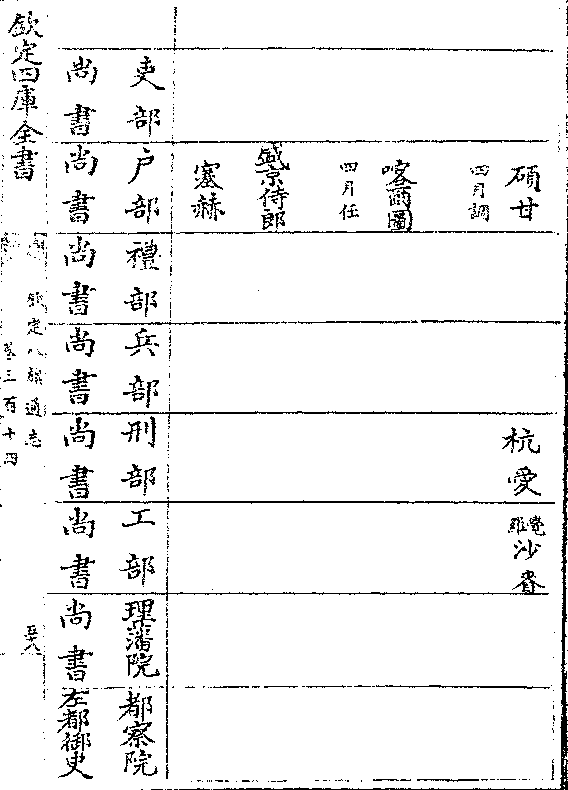 碩甘
四月調
喀爾圖
四月任
盛京侍郎
塞赫
杭愛
覺羅沙賚
吏部
尚書
戶部
尚書
禮部
尚書
兵部
尚書
刑部
尚書
工部
尚書
理藩院
尚書
都察院
左都御史
欽定四庫全書
欽定八旗通志
卷三百十四